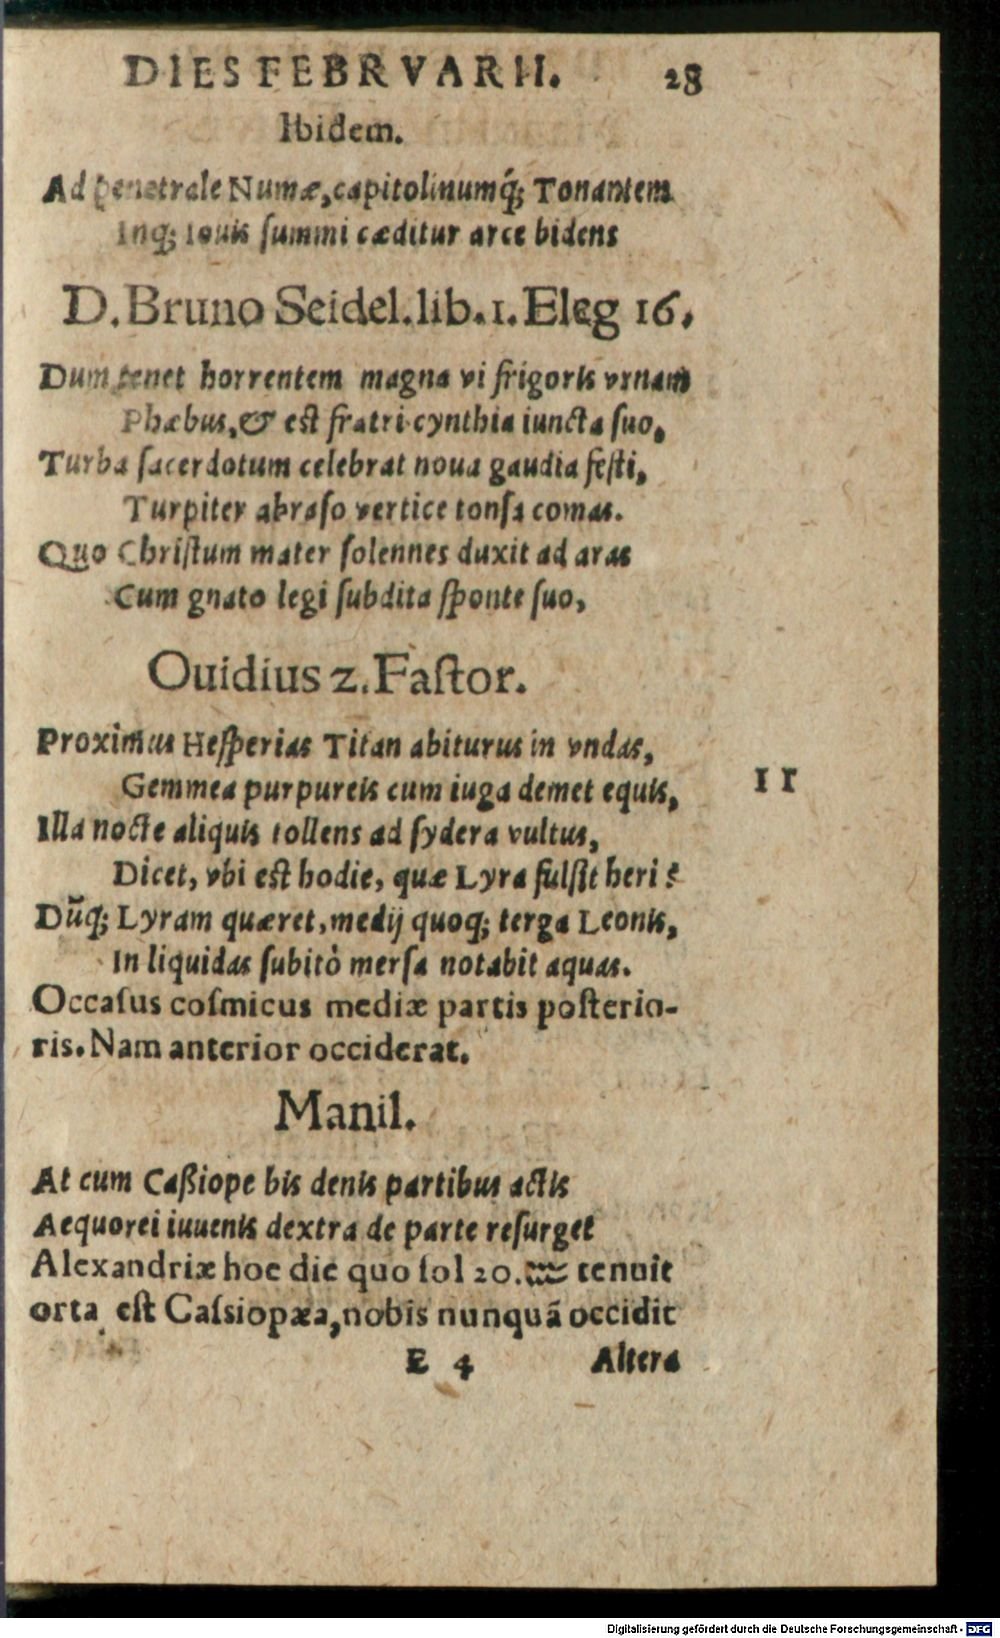 DIES FEBRVARII. 28
Ibidem.
Ad penetrale Numæ, capitolinumq́; Tonantem
Inq; Iouis ſummi cæditur arce bidens
D. Bruno Seidel. lib. 1. Eleg 16.
Dum tenet horrentem magna vi frigoris vrnam
Phæbus, & est fratri cynthia iuncta ſuo,
Turba ſacerdotum celebrat noua gaudia feſti,
Turpiter abraſo vertice tonſa comas.
Quo Chriſtum mater ſolennes duxit ad aras
Cum gnato legi ſubdita ſponte ſuo,
Ouidius 2. Faſtor.
Proximus Heſperias Titan abiturus in vndas,
Gemmea purpureis cum iuga demet equis,
11
Illa nocte aliquis tollens ad ſydera vultus,
Dicet, vbi est hodie, quæ Lyra fulſit heri?
Dũq; Lyram quæret, medij quoq; terga Leonis,
In liquidas ſubitò merſa notabit aquas.
Occaſus coſmicus mediæ partis poſterio-
ris. Nam anterior occiderat.
Manil.
At cum Caßiope bis denis partibus actis
Aequorei iuuenis dextra de parte reſurget
Alexandriæ hoc die quo ſol 20. ♒ tenuit
orta eſt Caſsiopæa, nobis nunquã occidit
E 4 Altera
Digitalisierung gefördert durch die Deutsche Forschungsgemeinschaft - DFG